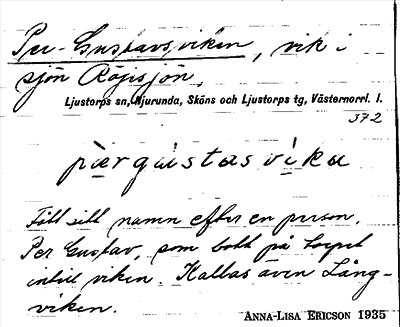 Per-Gustavsviken, vik i
sjön Röjesjön,
Ljustorps sn, Njurunda, Sköns och Ljustorps tg, Västernorrl. l.
372
pärgustasvika
Fått sitt namn efter en person,
Per Gustav, som bott på torpet
intill viken. Kallas även Lång-
viken.
ANNA-LISA ERICSON 1935